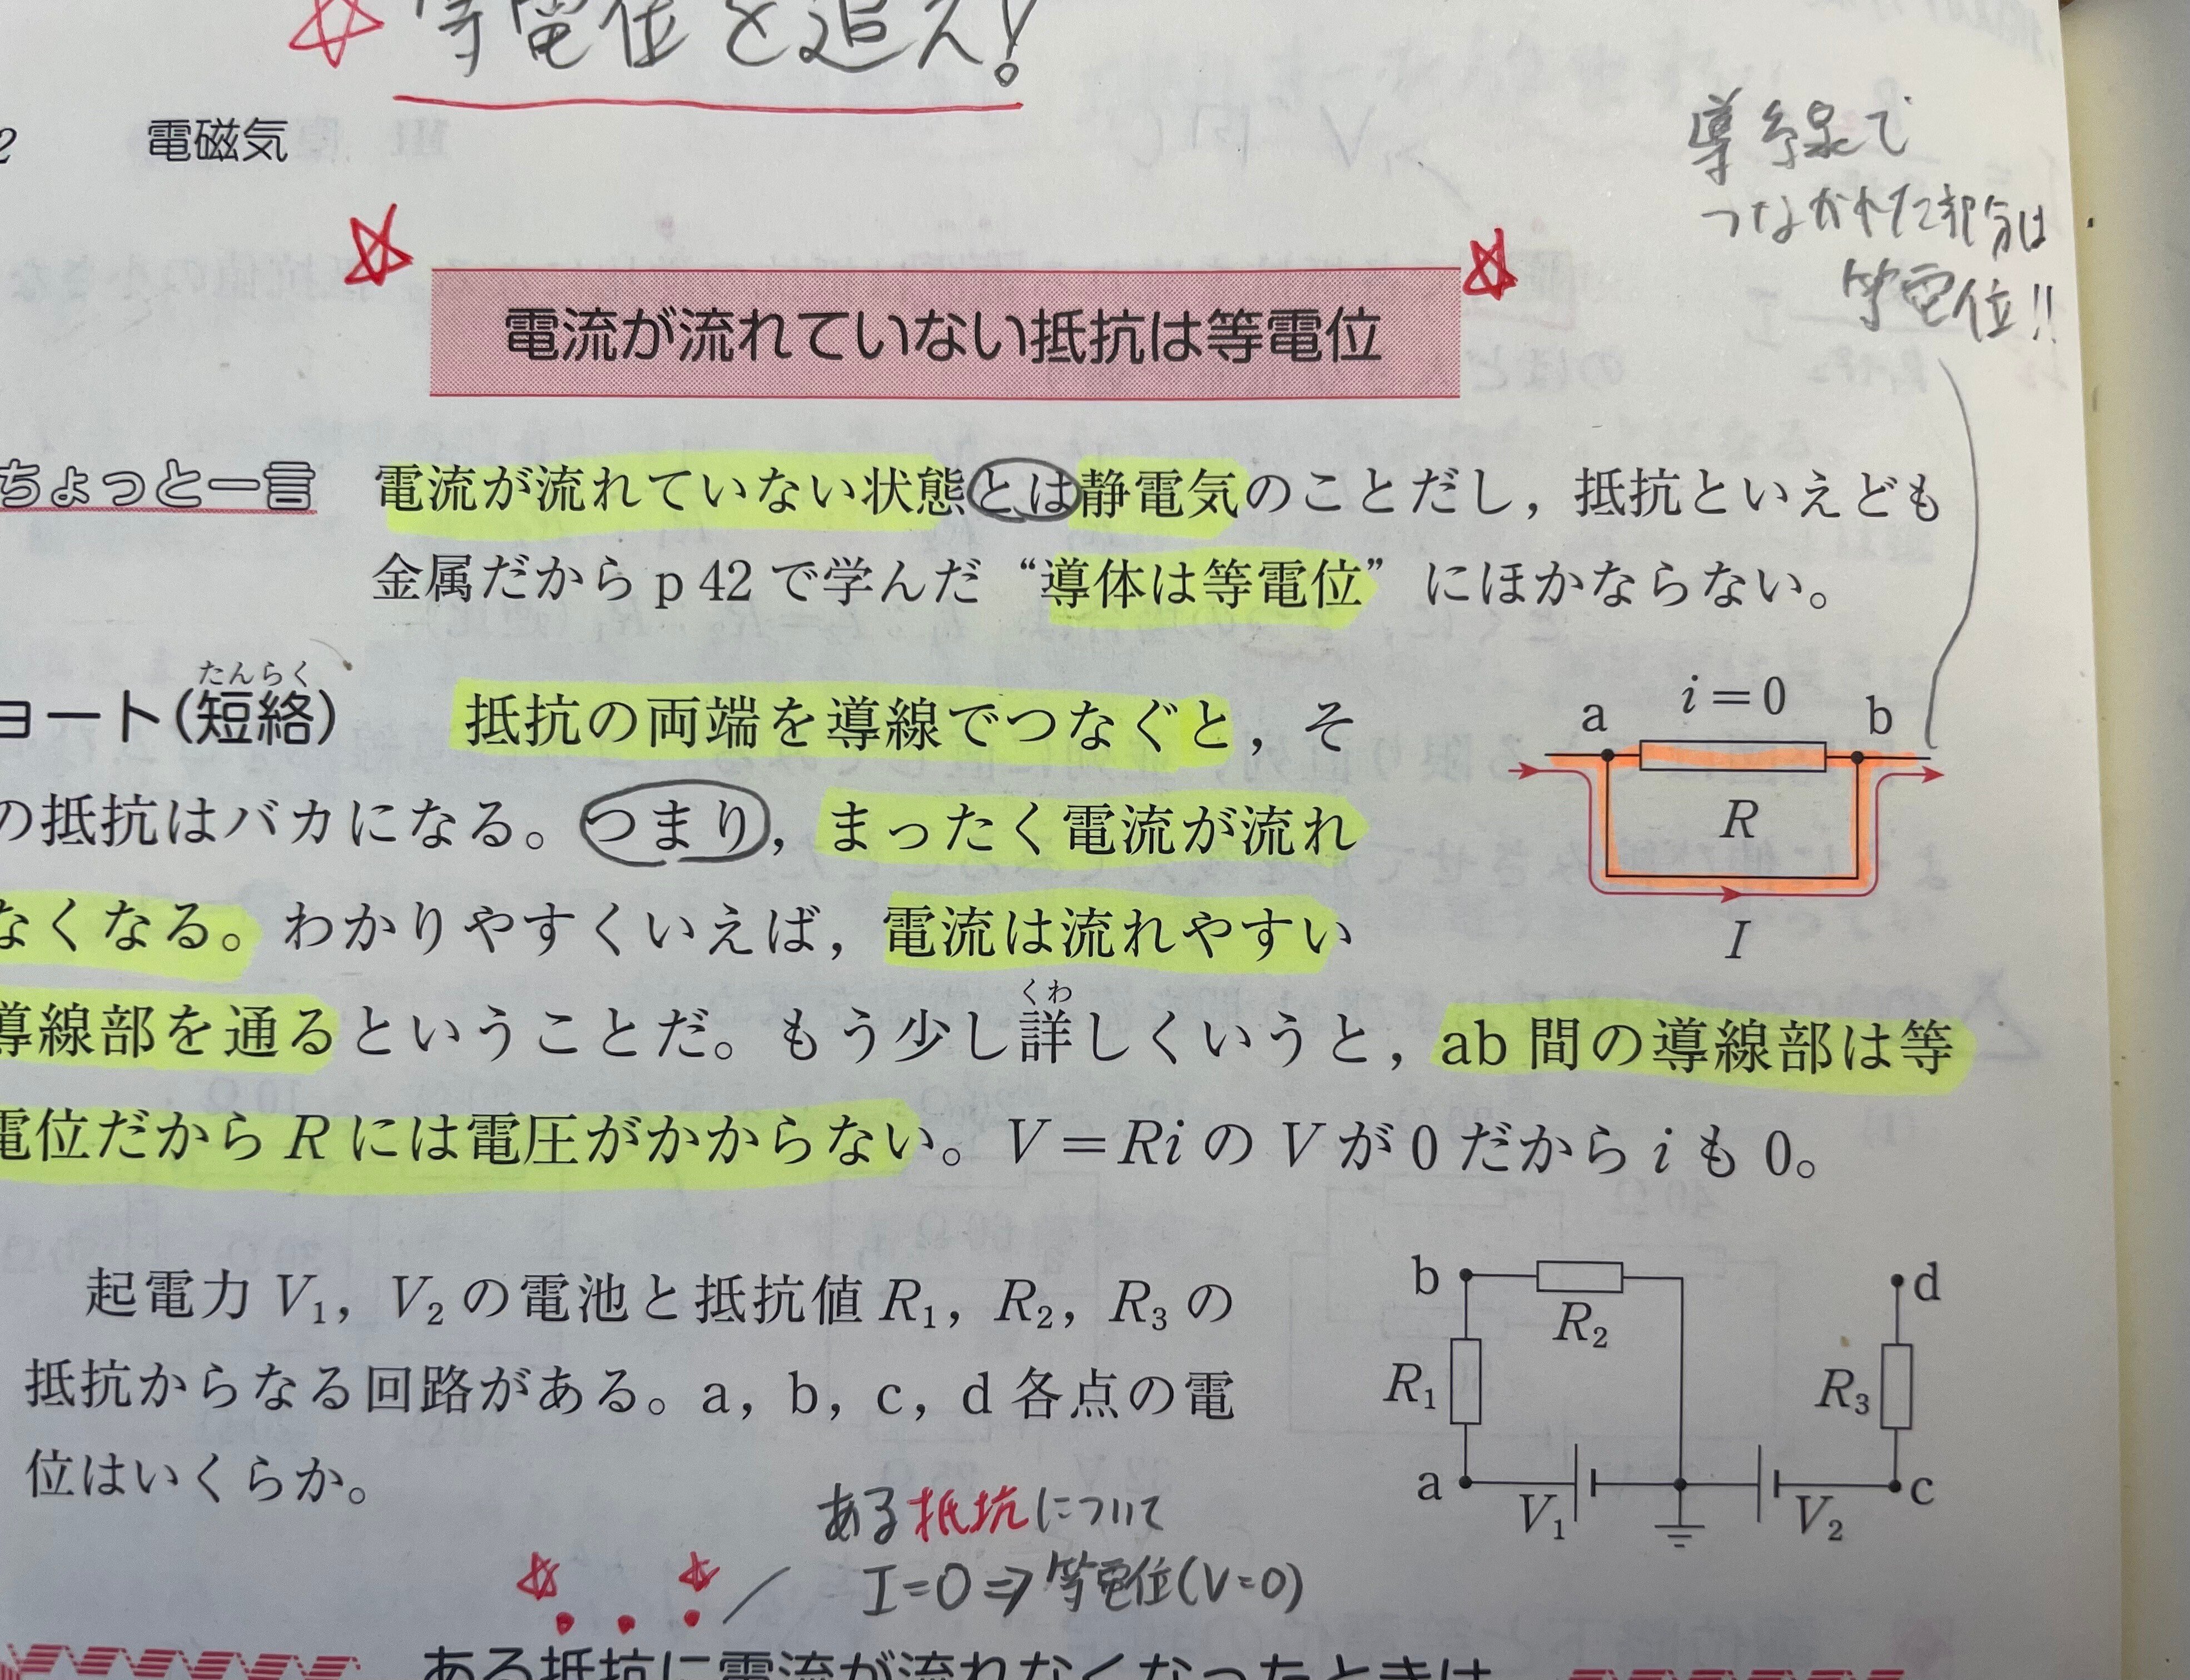 等電位を追え!
2 電磁気
導線で
つながれた部分は
等電位!!
電流が流れていない抵抗は等電位
ちょっと一言 電流が流れていない状態とは静電気のことだし，抵抗といえども
金属だからp 42で学んだ“導体は等電位”にほかならない。
ョート(短絡) 抵抗の両端を導線でつなぐと，そ
たんらく
の抵抗はバカになる。つまり，まったく電流が流れ
なくなる。わかりやすくいえば，電流は流れやすい
導線部を通るということだ。もう少し詳しくいうと，ab間の導線部は等
くわ
電位だからRには電圧がかからない。V＝RiのVが0だからiも0。
a i＝0 b
R
I
起電力V₁，V₂の電池と抵抗値R₁，R₂，R₃の
抵抗からなる回路がある。a，b，c，d各点の電
位はいくらか。
b R₂ d
R₁ R₃
a V₁ V₂ c
ある抵抗について
I=0⇒等電位(V=0)
ある抵抗に電流が流れなくなったときは